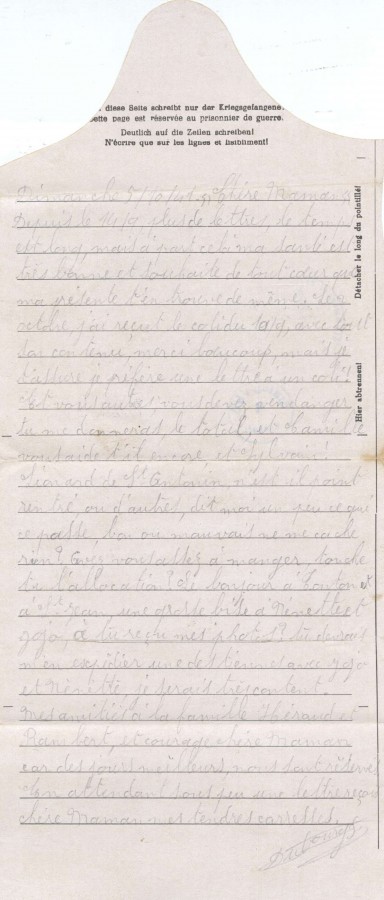 diese Seite schreibt nur der Kriegsgefangene!
Cette page est réservée au prisonnier de guerre.
Deutlich auf die Zeilen schreiben!
N'écrire que sur les lignes et lisiblement!
Dimanche 5/10/41 Chère Maman
Depuis le plus de lettres de temps
est long, mais à part cela ma santé est
très bonne et souhaite de tout coeur que
ma présente t'en trouve de même. Le 2
octobre, j'ai reçut le colis du 19/9, avec tout
son contenu, merci beaucoup, mais je
t'assure je préfère une lettre a un colis!
Et vous autres vous devez vendanger,
tu me donneras le total,
vous aide t'il encore et Sylvain?
Léonard de St Antonin, n'est il point
rentré ou d'autres, dit moi un peu ce qui
ce passe, bon ou mauvais ne me cache
rien? Avez vous assez à manger, touche
tu l'allocation? Le bonjour a Tonton et
a Jean, une grosse bise a Nénette et
gogo, à tu reçu mes photos? tu devrais
m'en expédier une des tienne avec gogo
et Nénette, je serait très content.
Mes amitié à la famille Héraud et
Rambert, et courage chère Maman
car des jours meilleurs, nous sont réservés
En attendant sous peu une lettre reçoit
chère Maman mes tendres carresses.
Détacher le long du pointillé!
Hier abtrennen!